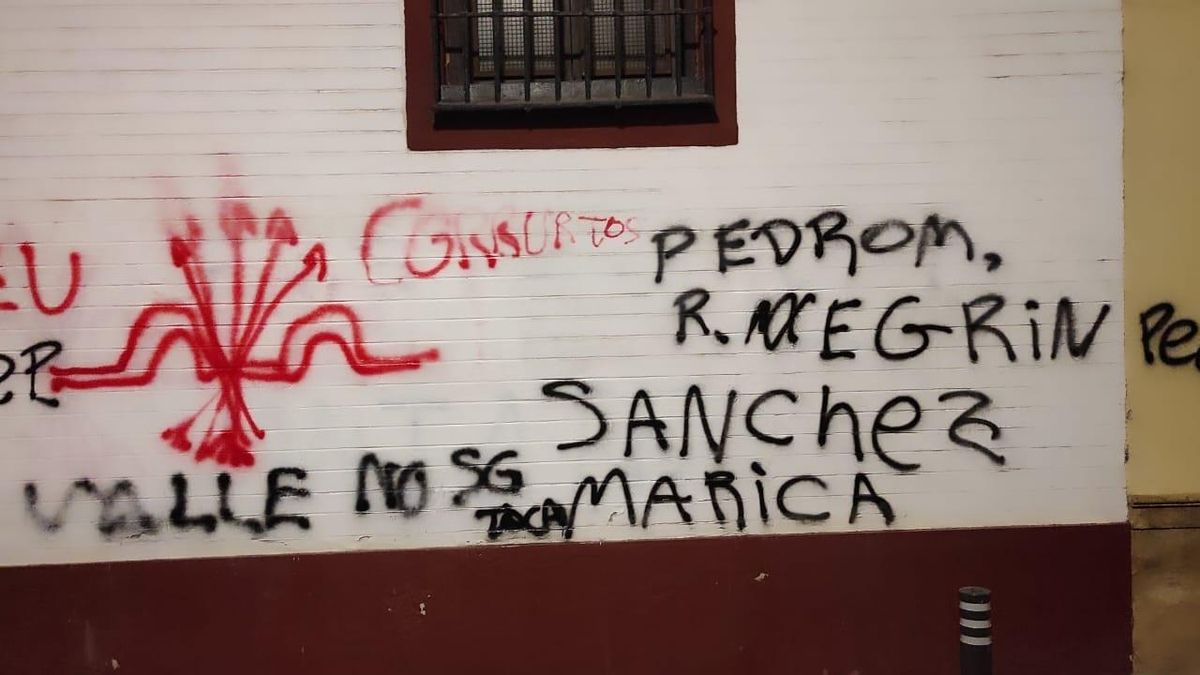 CONSURTOS
PEDROM,
R. NEGRIN
SANCHEZ
VALLE NO SG
TOCA MARICA
Pe